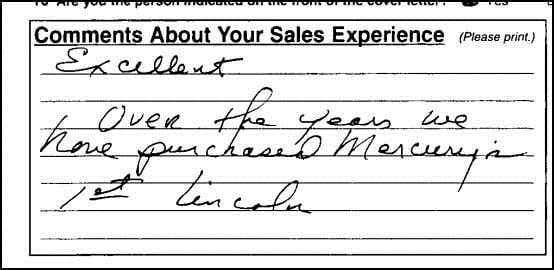 10 Are you the person indicated on the front of the cover letter? Yes
Comments About Your Sales Experience (Please print.)
Excellent
Over the years we
have purchased Mercury's
1st Lincoln